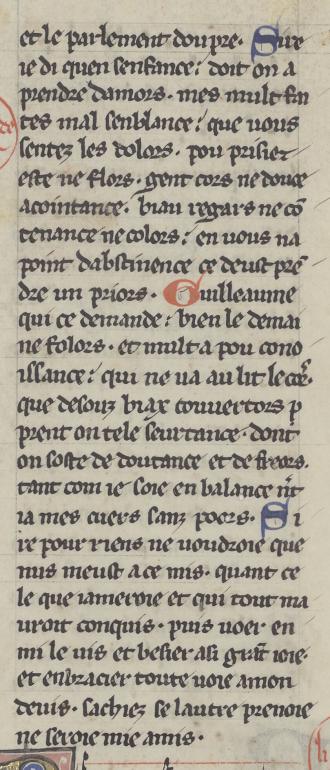 et le parlement dou pre. Sire
ie di quen senfance: doit on a
prendre damors. mes mult fai
tes mal senblance: que vous
sentez les dolors. pou prisiez
este ne flors. gent cors ne douce
acointance. biau regars ne cō
tenance ne colors: en vous na
point dabstinence ce deust prē
dre un priors. Guilleaume
qui ce demande: bien le demai
ne folors. et mult a pou cono
issance: qui ne va au lit le cor.
que desouz biax couvertors p
prent on tele seurtance. dont
on soste de doutance et de freors.
tant com ie soie en balance nīt
ia mes cuers sanz poers. Si
re pour riens ne voudroie que
nus meust a ce mis. quant ce
le que iameroie et qui tout ma
vroit conquis. puis voer en
mi le vis et besier a si grāt ioie.
et enbracier toute voie a mon
devis. sachiez se lautre prenoie
ne seroie mie amis.